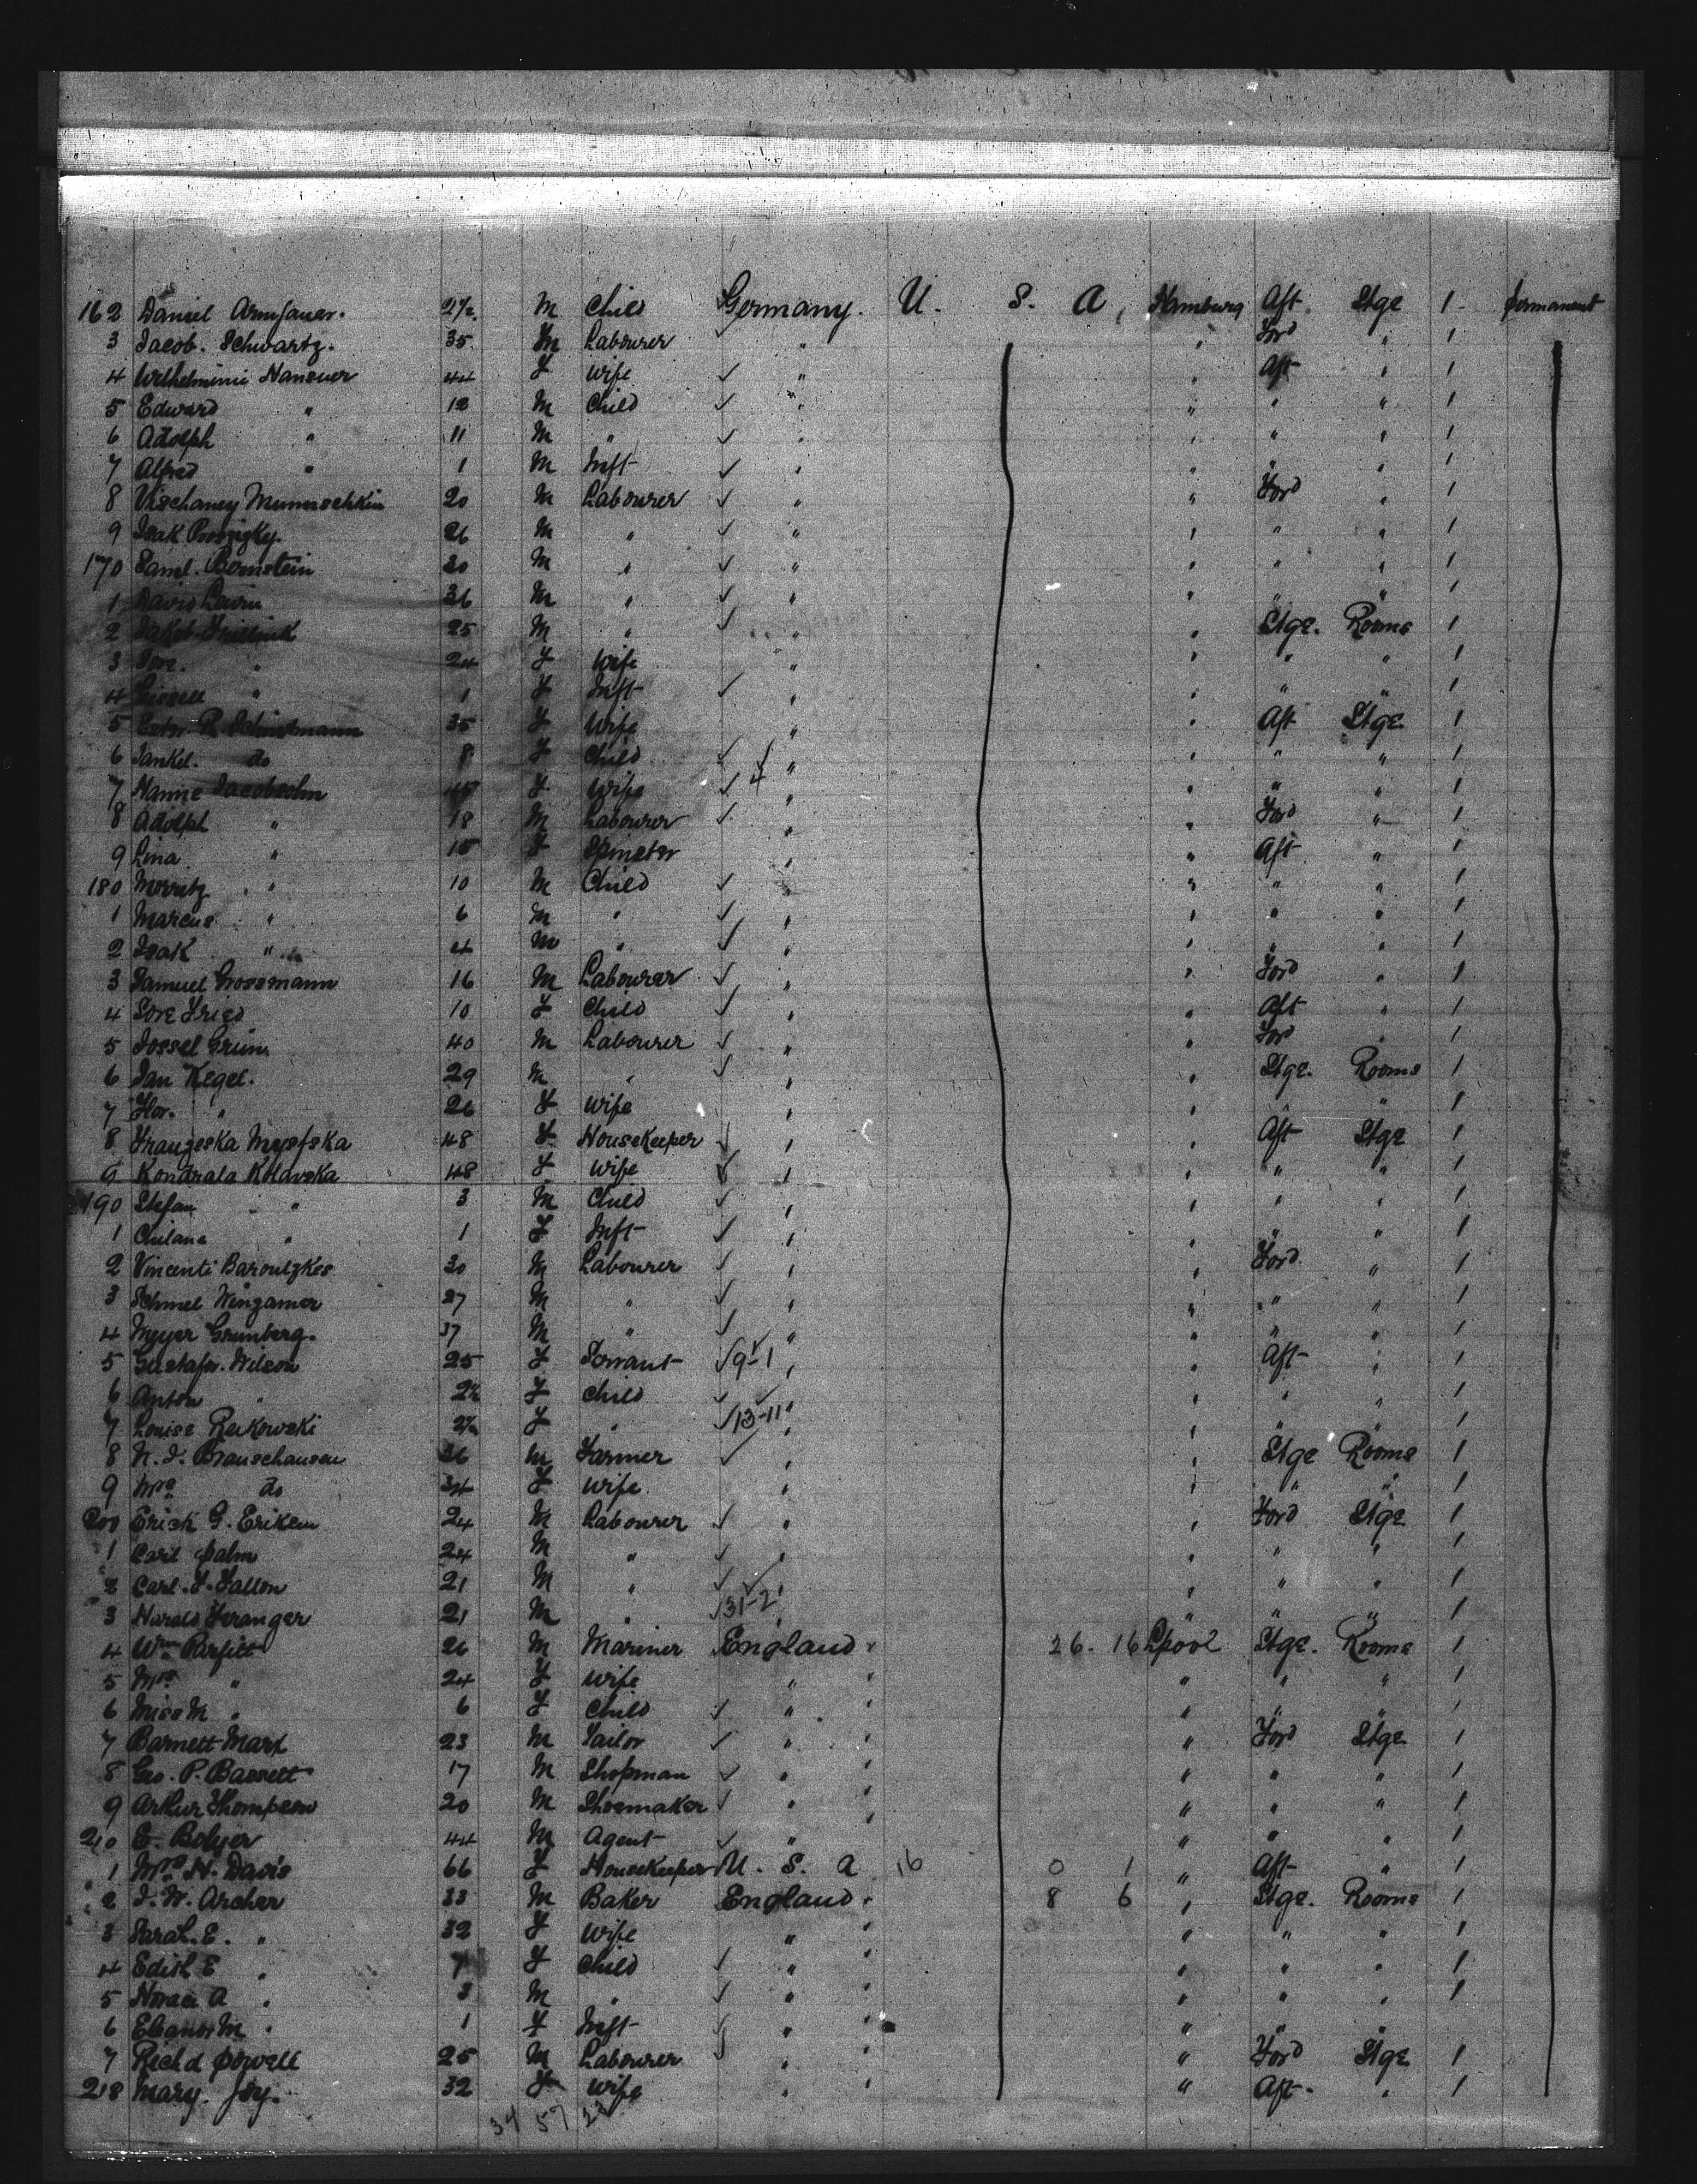 162 Daniel 2/12 M Child Germany. U. S. A. Hamburg Aft Stge 1 permanent
3 Jacob. Schwartz. 35 M Labourer " " Ford " 1
4 Wilhelmine Hansuer 44 F Wife ✓ " " Aft " 1
5 Edward " 12 M Child ✓ " " " " 1
6 Adolph " 11 M " ✓ " " " " 1
7 Alfred " 1 M Inft ✓ " " " " 1
8 20 M Labourer ✓ " " Ford " 1
9 Isak 26 M " ✓ " " " " 1
170 Saml. Bernstein 20 M " ✓ " " " " 1
1 David Levin 36 M " ✓ " " " " 1
2 Jakob 25 M " ✓ " " Stge. Rooms 1
3 " 24 F Wife " " " " 1
4 " 1 F Inft ✓ " " " " 1
5 35 F Wife " " Aft Stge 1
6 Jankel. do 8 F Child ✓ " " " " 1
7 Hannie Jacobsohn 45 F Wife ✓ 4 " " " " 1
8 Adolph " 18 M Labourer ✓ " " Ford " 1
9 Lina " 15 F Spinster " " Aft " 1
180 Morritz " 10 M Child ✓ " " " " 1
1 Marcus " 6 M " ✓ " " " " 1
2 Isak " 4 M " ✓ " " " " 1
3 Samuel Grossmann 16 M Labourer ✓ " " Ford " 1
4 Sore Fried 10 F Child ✓ " " Aft " 1
5 Jossel Grün 40 M Labourer ✓ " " Ford " 1
6 Jan Kegel. 29 M " ✓ " " Stge. Rooms 1
7 Flor. " 26 F Wife " " " " 1
8 Franzeska 48 F Housekeeper ✓ " " Aft Stge 1
9 Kondrala Kolavska 48 F Wife ✓ " " " " 1
190 Stefan " 3 M Child ✓ " " " " 1
1 " 1 F Inft ✓ " " " " 1
2 Vincenti Baroutzkes 30 M Labourer ✓ " " Ford " 1
3 Schmel Wingamer 27 M " ✓ " " " " 1
4 Meyer Grunberg. 37 M " ✓ " " " " 1
5 Gustafva. Nilson 25 F Servant ✓ 9-1 " " Aft " 1
6 Anton " F Child ✓ " " " " 1
7 Louise Reikowski F " ✓ 13-11 " " " " 1
8 N. J. Brauschausen 36 M Farmer ✓ " " Stge Rooms 1
9 Mrs do 34 F Wife " " " " 1
200 Erick G. Eriksen 24 M Labourer ✓ " " Ford Stge 1
1 Carl Palm 24 M " ✓ " " " " 1
2 Carl. F. Fallon 21 M " ✓ " " " " 1
3 Harald 21 M " ✓ 31-2 " " " " 1
4 Wm Parfitt 26 M Mariner England " 26. 16 Lpool Stge. Rooms 1
5 Mrs " 24 F Wife " " " " " 1
6 Miss M " 6 F Child ✓ " " " " " 1
7 Barnett Marx 23 M Tailor ✓ " " " Ford Stge 1
8 Geo. P. Bassett 17 M Shopman ✓ " " " " " 1
9 Arthur Thompson 20 M Shoemaker ✓ " " " " " 1
210 E. Bolyer 44 M Agent ✓ " " " " 1
1 Mrs H. Davis 66 F Housekeeper U. S. A 16 0 1 " Aft " 1
2 J. W. Archer 33 M Baker England " 8 6 " Stge. Rooms 1
3 Sarah. E. " 32 F Wife " " " " " 1
4 Edith E " 7 F Child ✓ " " " " " 1
5 Horace A " 3 M " ✓ " " " " " 1
6 Eleanor M " 1 F Inft ✓ " " " " "
7 Richd Powell 25 M Labourer ✓ " " " Ford Stge 1
218 Mary. Joy. 32 F Wife " " Aft. " 1
34 57 22